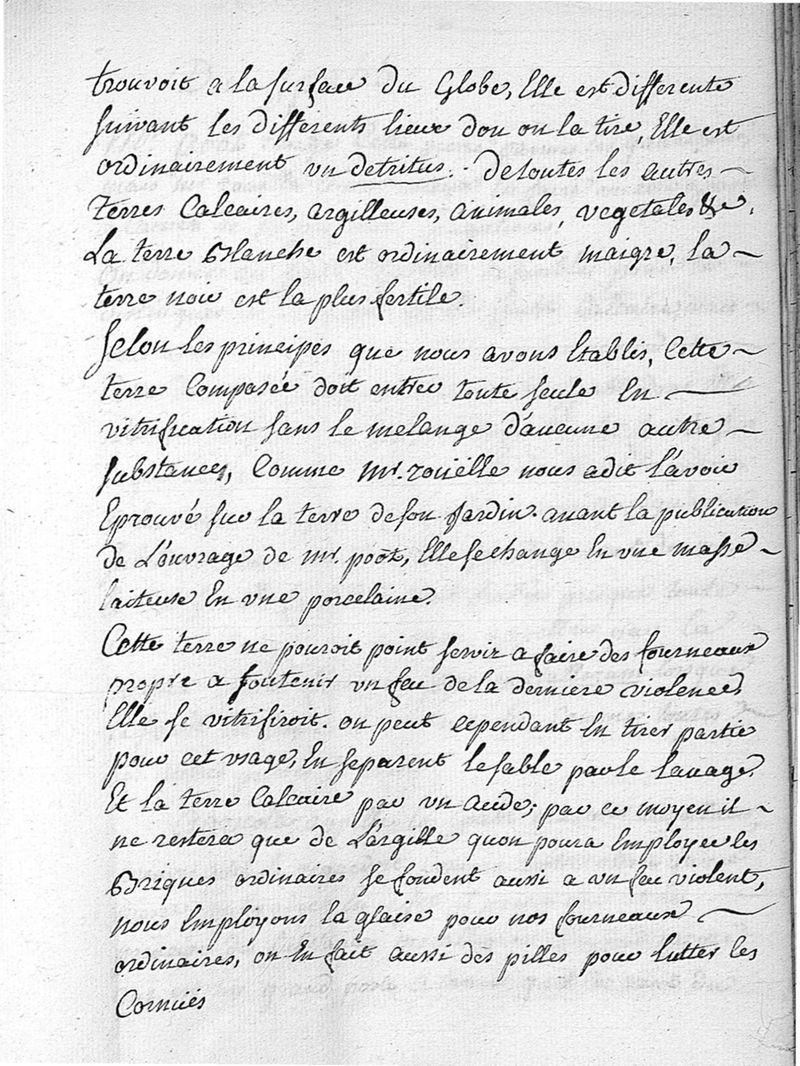 trouvoit a la surface du Globe, Elle est differente
suivant les differents lieux dou on la tire, Elle est
ordinairement un detritus. de toutes les autres
terres Calcaires, argilleuses, animales, vegetales &c.
La terre Blanche est ordinairement maigre, la
terre noir est la plus fertile.
Selon les principes que nous avons Etablis, Cette
terre Composée doit entrer toute seule En
vitrification sans le melange d'aucune autre
substances, Comme mr. rouëlle nous a dit l'avoir
Eprouvé sur la terre de son Jardin. avant la publication
de L'ouvrage de mr. poot, Elle se change En une masse
laiteuse En une porcelaine.
Cette terre ne pouroit point servir a faire des fourneaux
propre a soutenir un feu de la derniere violence,
Elle se vitrifiroit. on peut cependant En tirer partie
pour cet usage, En separent le sable par le lavage,
Et la terre Calcaire par un acide; par ce moyen il
ne restera que de L'argille quon poura Employer les
Briques ordinaires se fondent aussi a un feu violent,
nous Employons la glaise pour nos fourneaux
ordinaires, on En fait aussi des pilles pour lutter les
Cornües